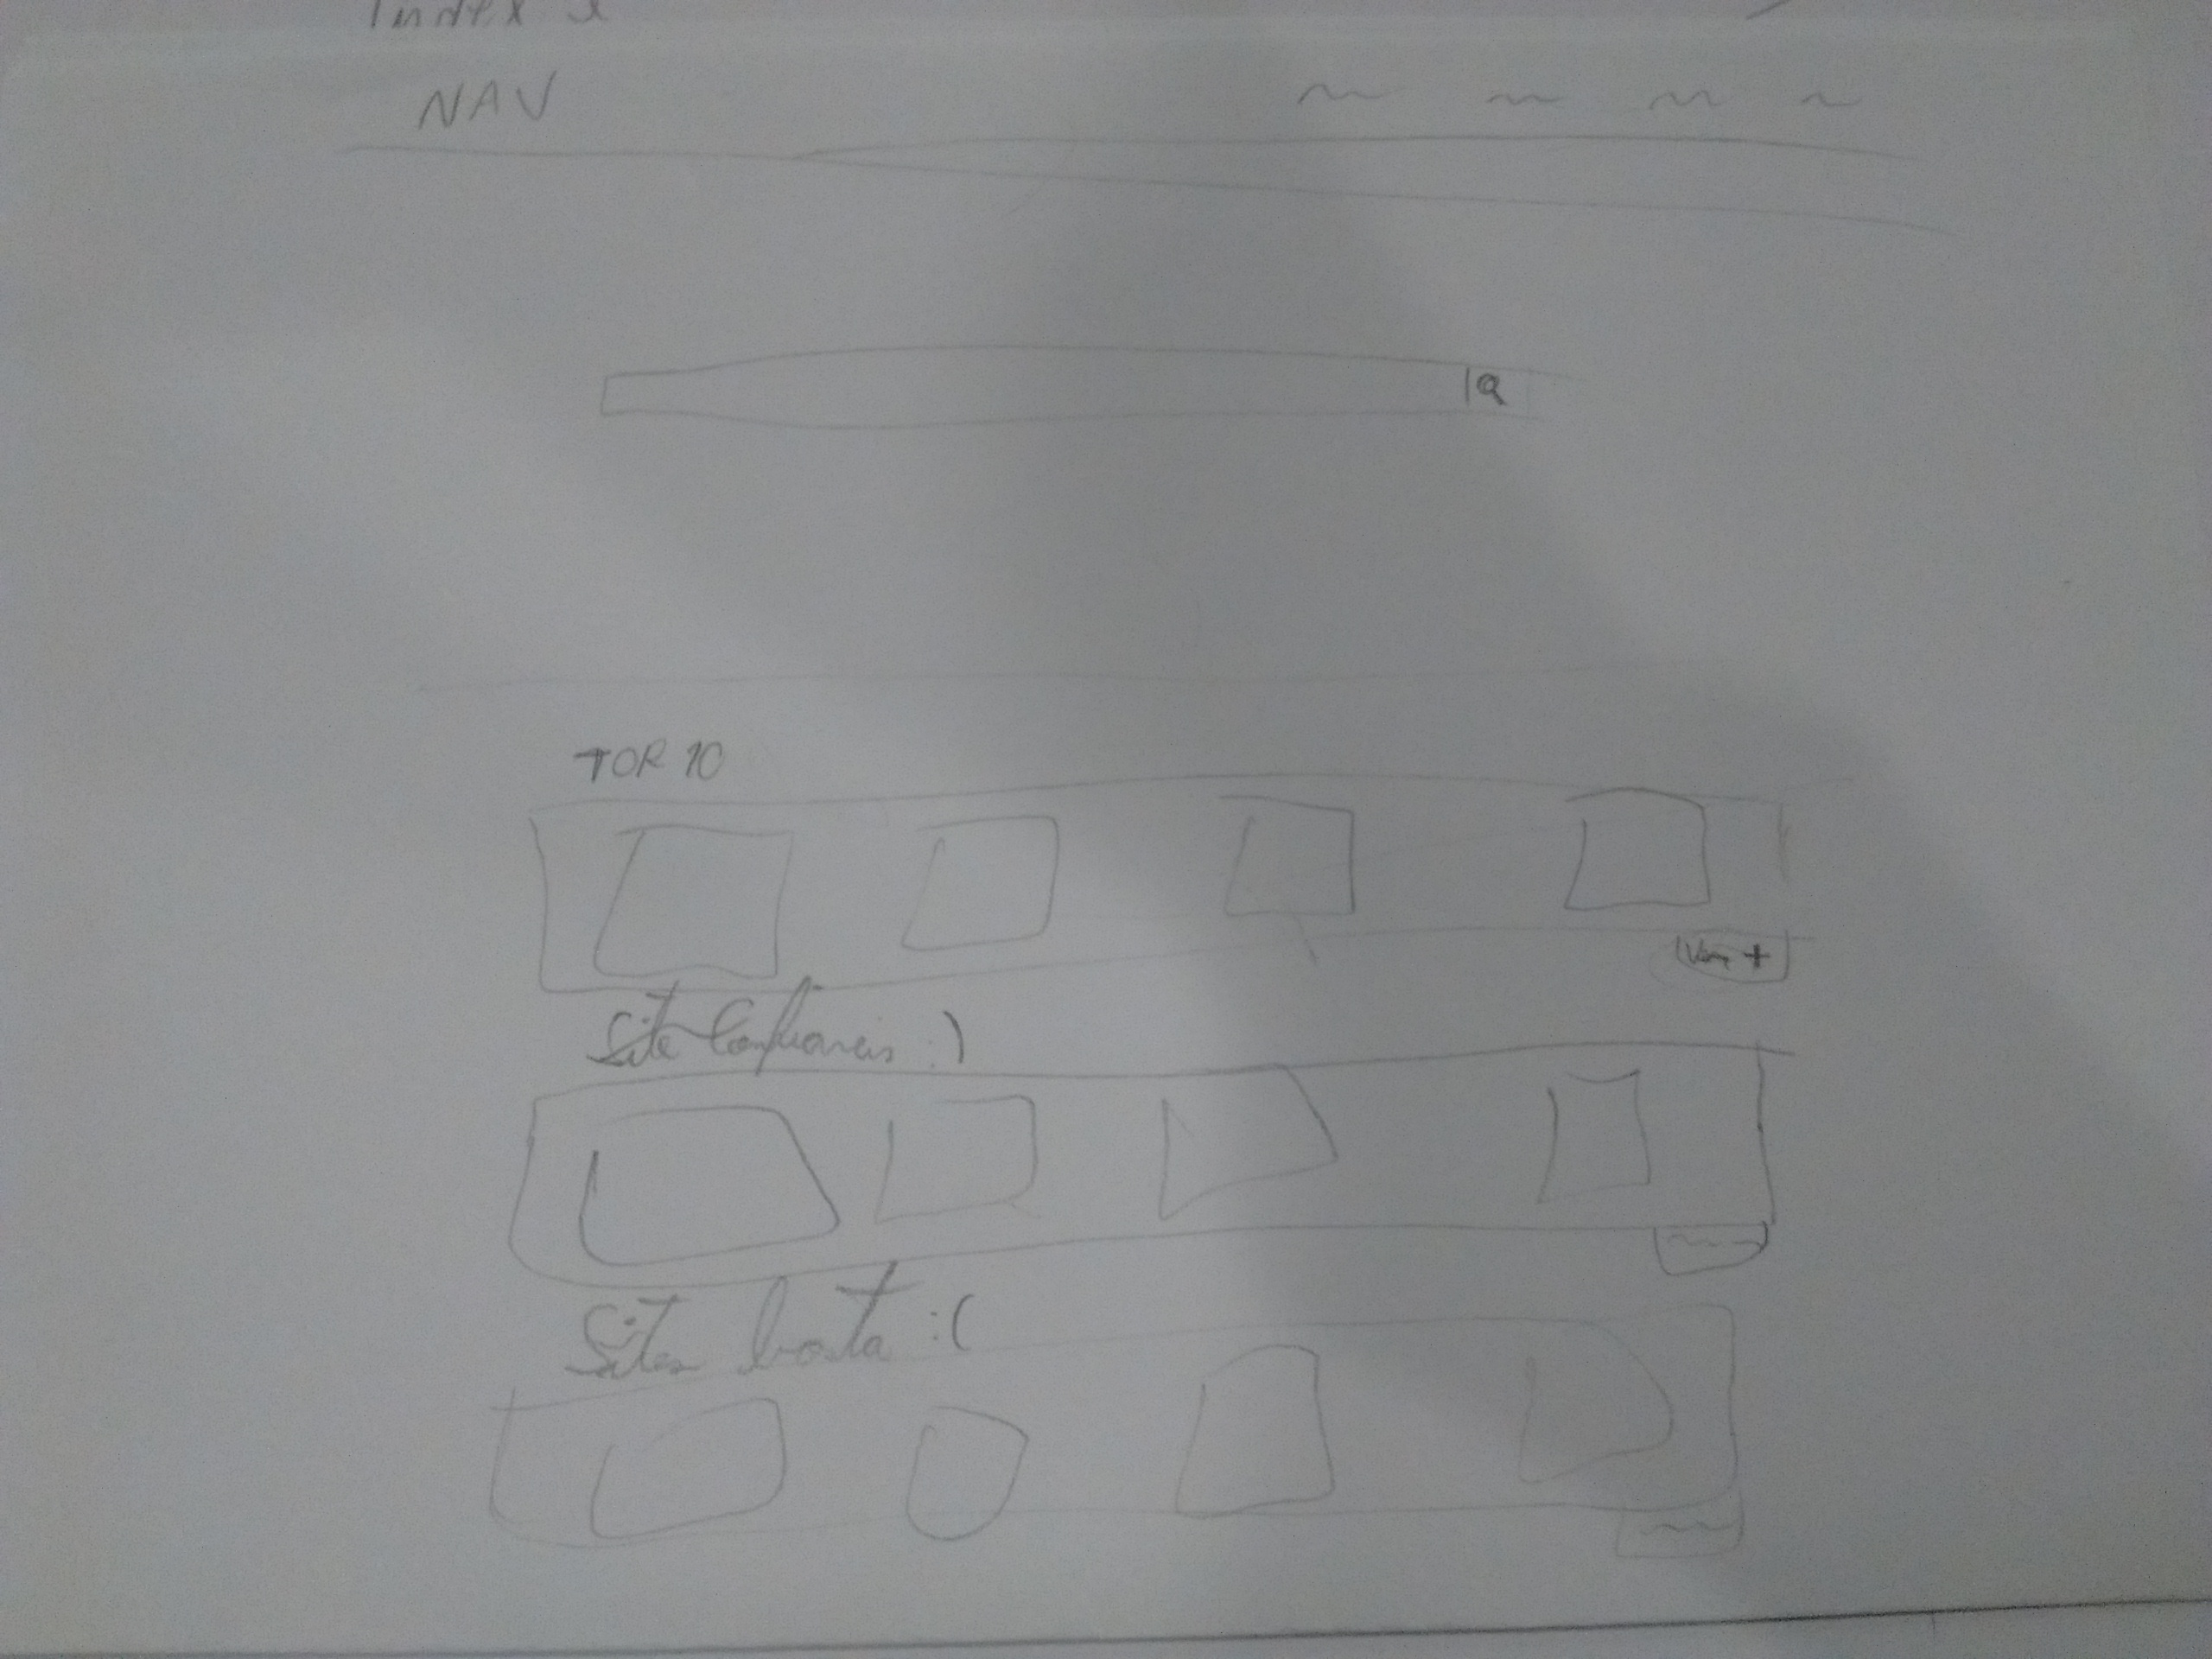 Index
NAV
TOP 10
Ver +
Site Confiáveis :)
Sites bosta :(